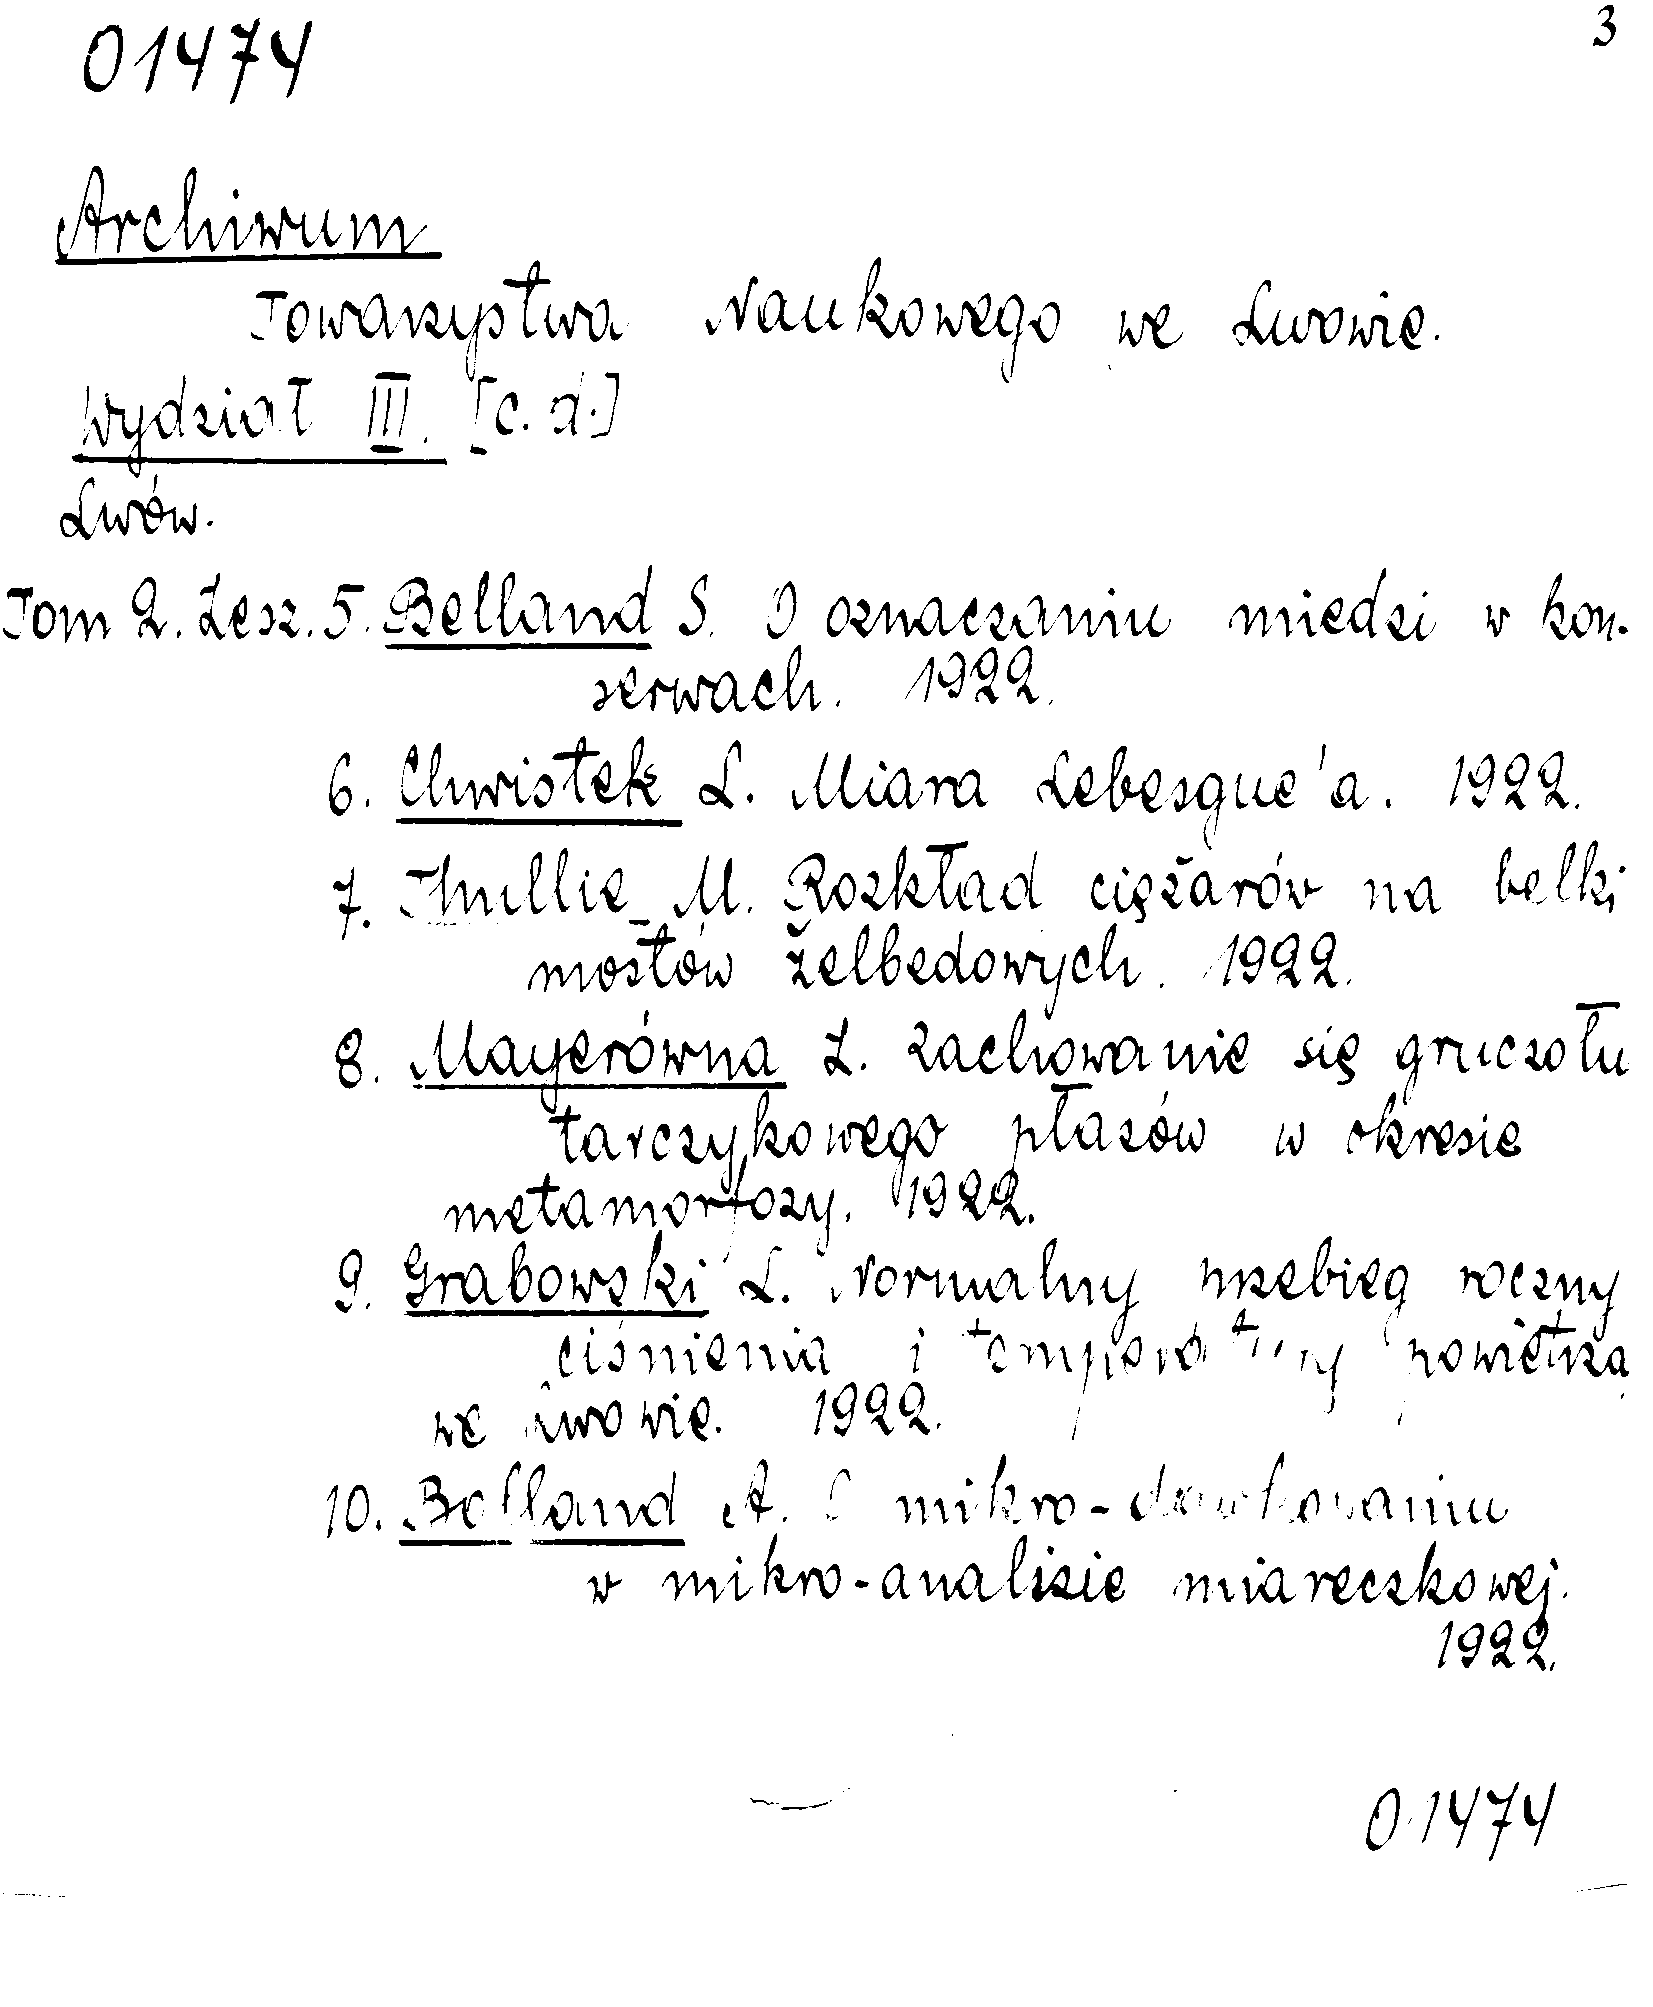 01474
3
Archiwum
Towarzystwa Naukowego we Lwowie.
Wydział III. [c. d.]
Lwów.
Tom 2. Zesz. 5. Belland S. O oznaczaniu miedzi w kon-
serwach. 1922.
6. Chwistek L. Miara Lebesgue'a. 1922.
7. Thullie M. Rozkład ciężarów na belki
mostów żelbedowych. 1922.
8. Mayerówna Z. Zachowanie się gruczołu
tarczykowego płazów w okresie
metamorfozy. 1922.
9. Grabowski L. Normalny przebieg roczny
ciśnienia i temperatury powietrza
we Lwowie. 1922.
10. Bolland A. O mikro-
w mikro-analizie miareczkowej.
1922.
01474